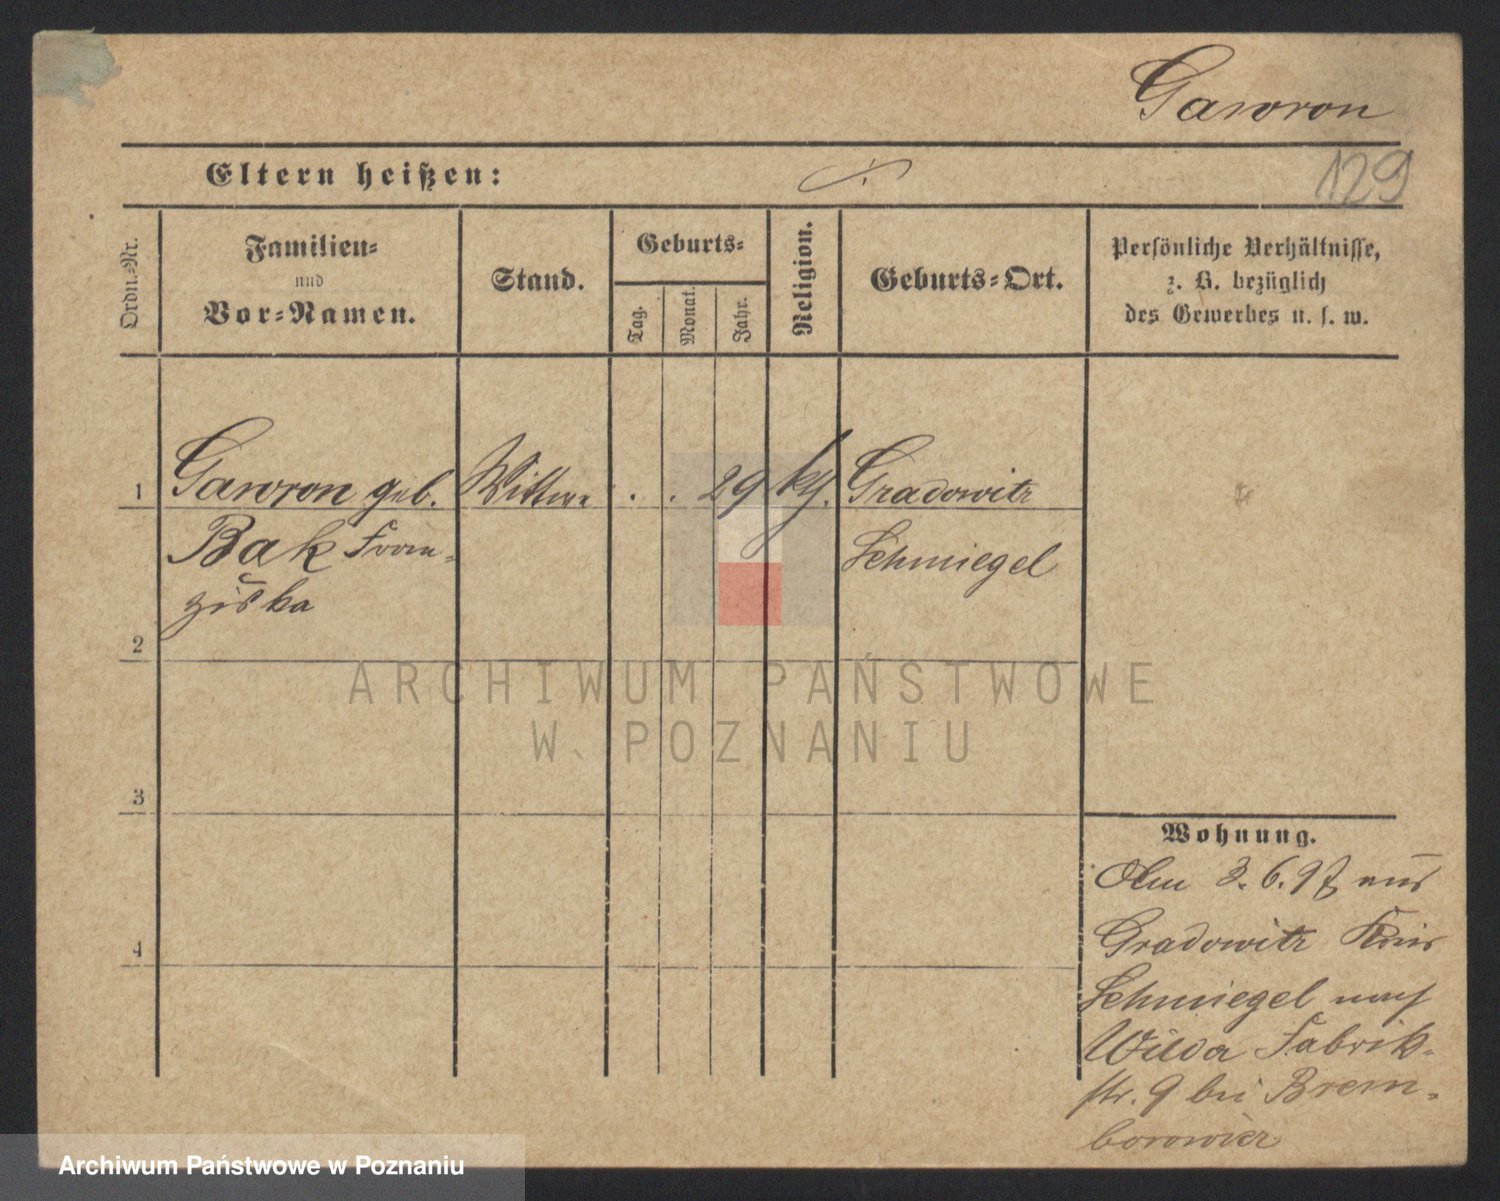 Gawron
129
Eltern heißen:
Ordn.-Nr.
Familien-
und
Vor-Namen.
Stand.
Geburts-
Tag.
Monat.
Jahr.
Religion.
Geburts-Ort.
Persönliche Verhältnisse,
z. B. bezüglich
des Gewerbes u. s. w.
1
Gawron geb.
Wittwe
. . 29
kth.
Gradowitz
Bak Fran-
ziska
Schmiegel
2
3
4
Wohnung.
Am 3.6.97 aus
Gradowitz Kreis
Schmiegel nach
Wilda Fabrik-
str. 9 bei Brem-
borowicz
ARCHIWUM PAŃSTWOWE
W POZNANIU
Archiwum Państwowe w Poznaniu